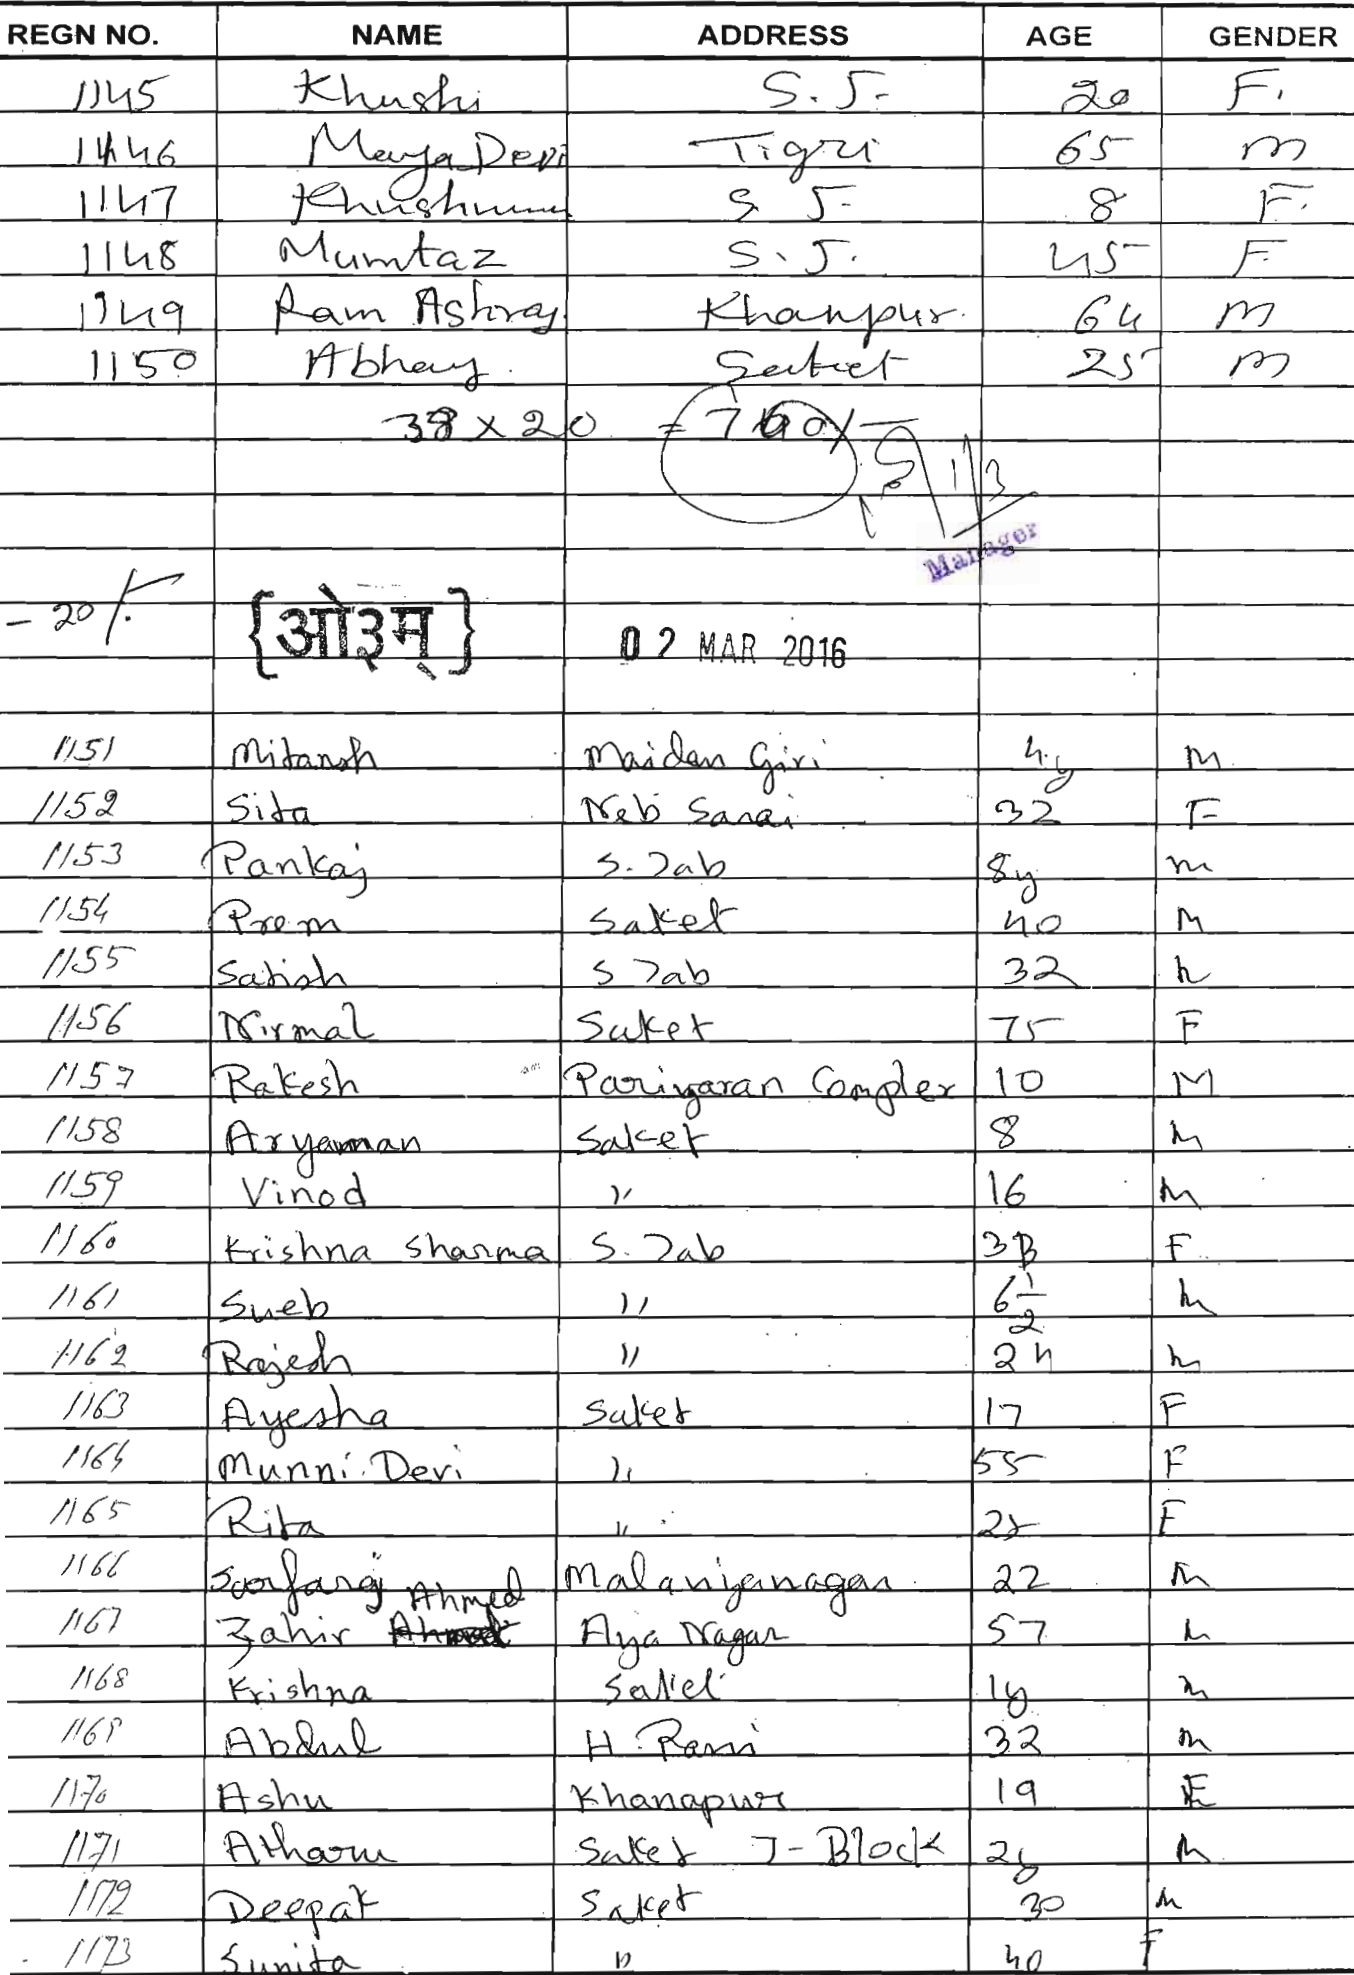 REGN NO. NAME ADDRESS AGE GENDER
1145 Khushi S. J. 20 F.
1146 Maya Devi Tigri 65 M
1147 S J. 8 F.
1148 Mumtaz S. J. 45 F
1149 Ram Ashray Khanpur. 64 M
1150 Abhay Saket 25 M
38 x 20 = 760/-
1/3
Manager
- 20/-
{ओ३म्} 02 MAR 2016
1151 Mitansh Maidan Giri 4y M
1152 Sita Neb Sarai 32 F
1153 Pankaj S. Jab 8y M
1154 Prem Saket 40 M
1155 Satish S Jab 32 M
1156 Nirmal Saket 75 F
1157 Rakesh Pariyaran Complex 10 M
1158 Aryamman Saket 8 M
1159 Vinod " 16 M
1160 Krishna Sharma S. Jab F
1161 Sueb " 6 1/2 M
1162 Rajesh " 24 M
1163 Ayesha Saket 17 F
1164 Munni Devi " 55 F
1165 Rita " 25 F
1166 Sarfaraj Ahmed Malaviyanagar 22 M
1167 Zahir Aya Nagar 57 M
1168 Krishna Saket 1y M
1169 Abdul H. Rani 32 M
1170 Ashu Khanapur 19 F
1171 Atharu Saket J-Block 2y M
1172 Deepak Saket 30 M
1173 Sunita " 40 F